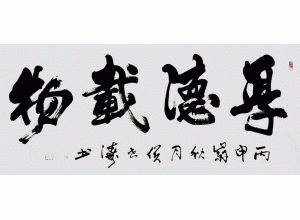 厚德載物
丙申嵗秋月侯志濤書